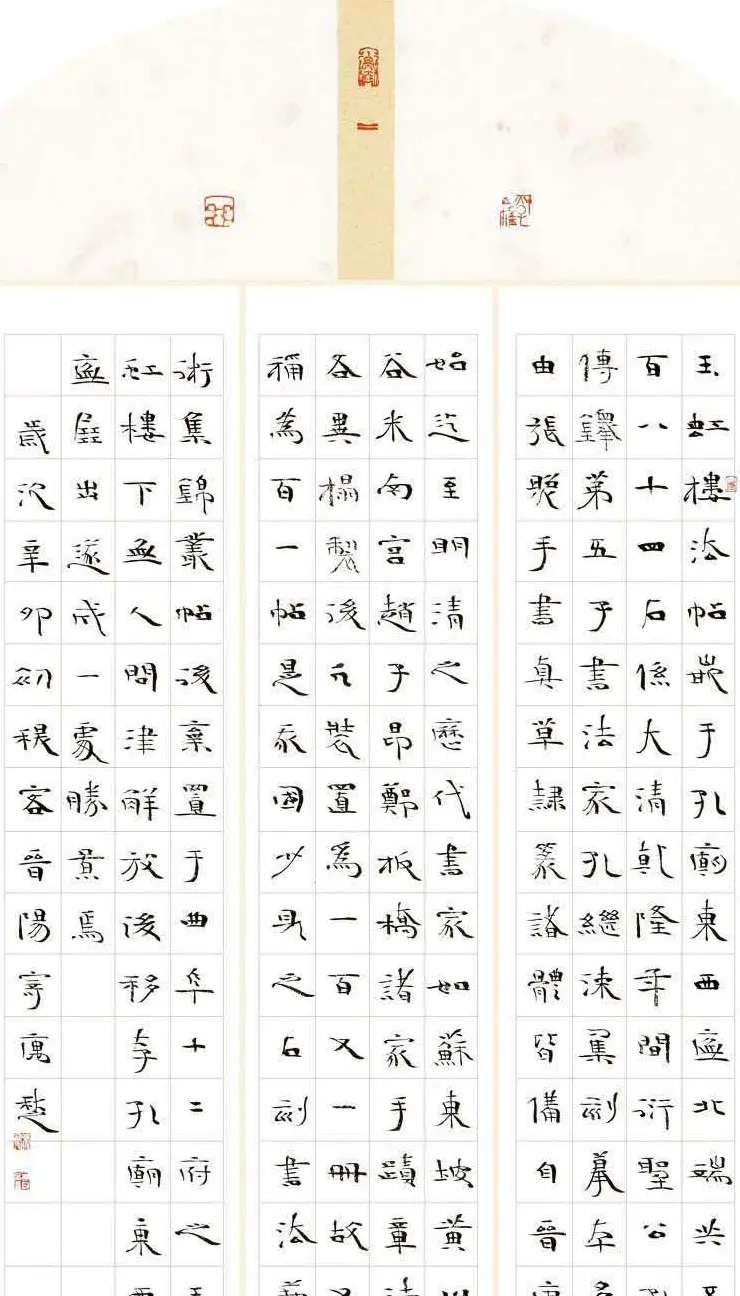 玉虹樓法帖嵌于孔廟東西廡北端共
百八十四石係大清乾隆年間衍聖公孔
傳鐸第五子書法家孔繼涑集刻摹本
由張照手書真草隸篆諸體皆備自晉唐
始迄至明清之歷代書家如蘇東坡黃山
谷米南宫趙子昂鄭板橋諸家手蹟章法
各異榻製後裝置為一百又一冊故又
稱為百一帖是我國少見之石刻書法藝
術集錦叢帖後棄置于曲阜十二府之玉
虹樓下無人問津解放後移存孔廟東西
廡展出遂成一處勝景焉
歲次辛卯初客晉陽寄寓